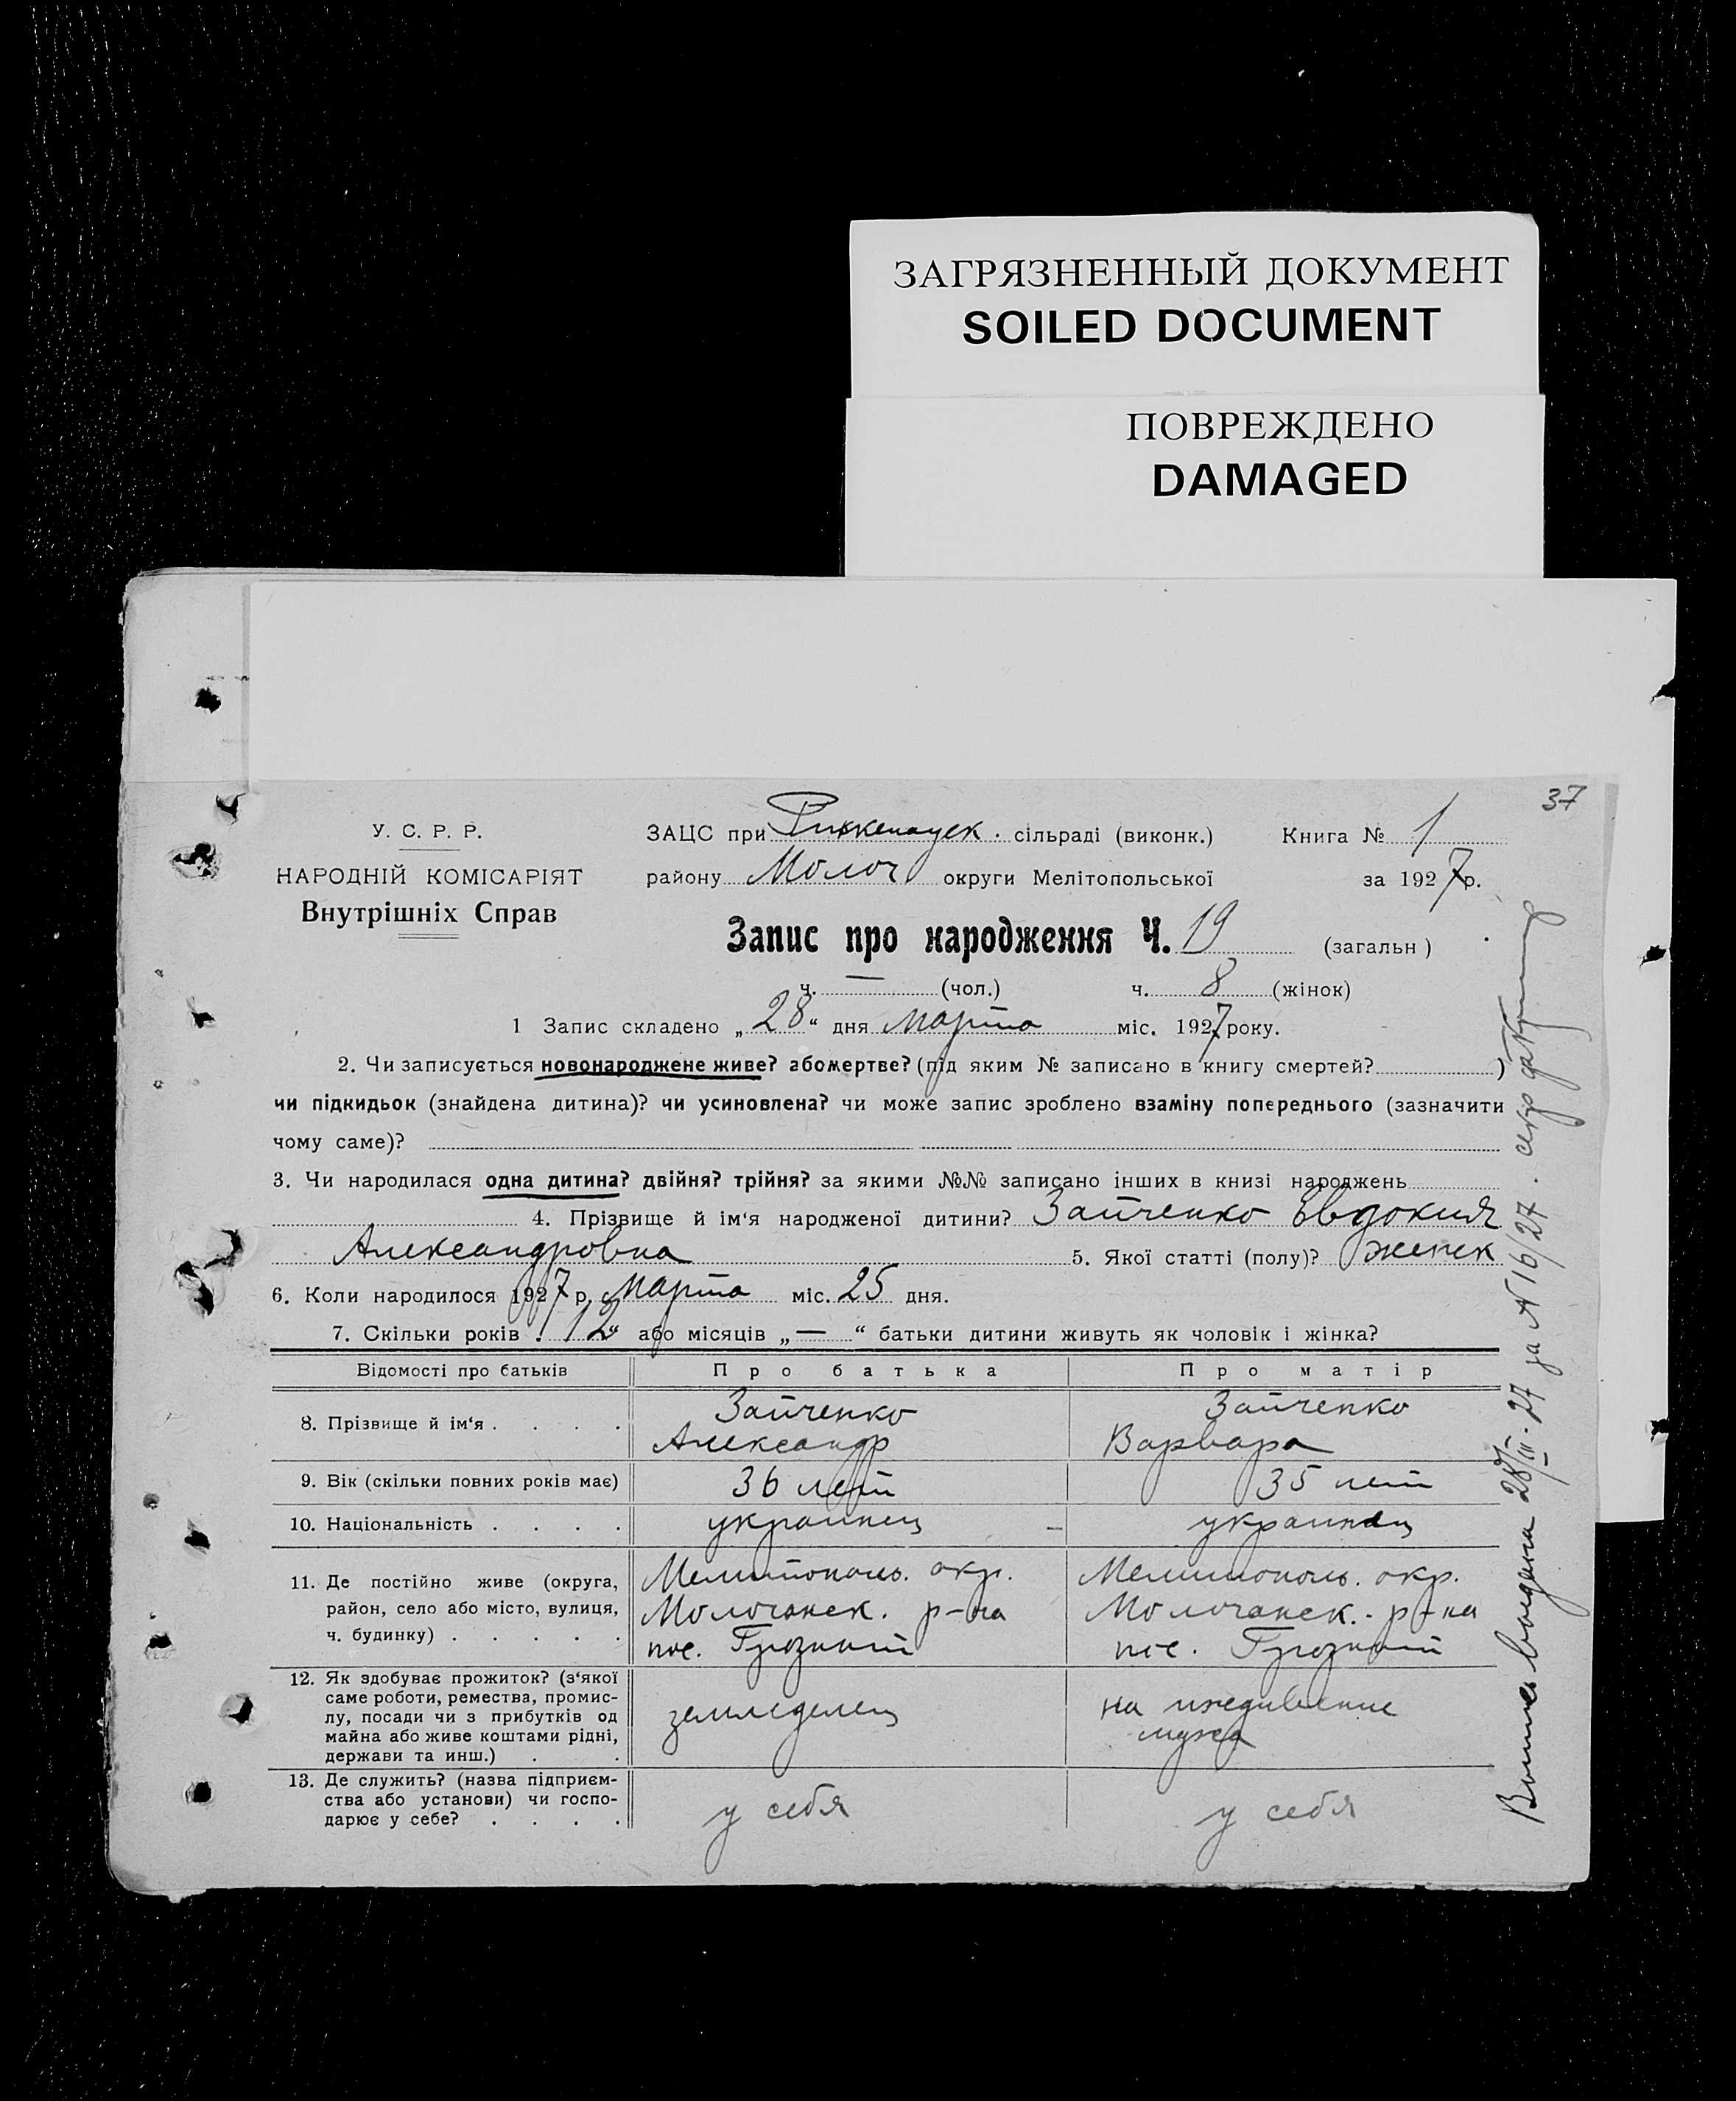 ЗАГРЯЗНЕННЫЙ ДОКУМЕНТ
SOILED DOCUMENT
ПОВРЕЖДЕНО
DAMAGED
37
У. С. Р. Р.
НАРОДНІЙ КОМІСАРІЯТ
Внутрішніх Справ
ЗАЦС при сільраді (виконк.) Книга № 1
району Молоч округи Мелітопольської за 1927 р.
Запис про народження Ч. 19 (загальн )
ч. — (чол.) ч. 8 (жінок)
1 Запис складено „28“ дня марта міс. 1927 року.
2. Чи записується новонароджене живе? або мертве? (під яким № записано в книгу смертей? )
чи підкидьок (знайдена дитина)? чи усиновлена? чи може запис зроблено взаміну попереднього (зазначити
чому саме)?
3. Чи народилася одна дитина? двійня? трійня? за якими №№ записано інших в книзі народжень
4. Прізвище й ім‘я народженої дитини? Зайченко Евдокия
Александровна 5. Якої статті (полу)? женск
6. Коли народилося 1927 р. марта міс. 25 дня.
7. Скільки років 12“ або місяців „—“ батьки дитини живуть як чоловік і жінка?
Відомості про батьків Про батька Про матір
8. Прізвище й ім‘я . . . . Зайченко Зайченко
Александр Варвара
9. Вік (скільки повних років має) 36 лет 35 лет
10. Національність . . . . украинец украинец
11. Де постійно живе (округа, Мелитополь. окр. Мелитополь. окр.
район, село або місто, вулиця, Молочанск. р-на Молочанск. р-на
ч. будинку) . . . . . пос. Грозный пос. Грозный
12. Як здобуває прожиток? (з‘якої
саме роботи, ремества, промис-
лу, посади чи з прибутків од земледелец на иждивение
майна або живе коштами рідні, мужа
держави та инш.) . .
13. Де служить? (назва підприєм-
ства або установи) чи госпо- у себя у себя
дарює у себе? . . . .
Выпись выдана 28/III-27 за № 16/27. секр